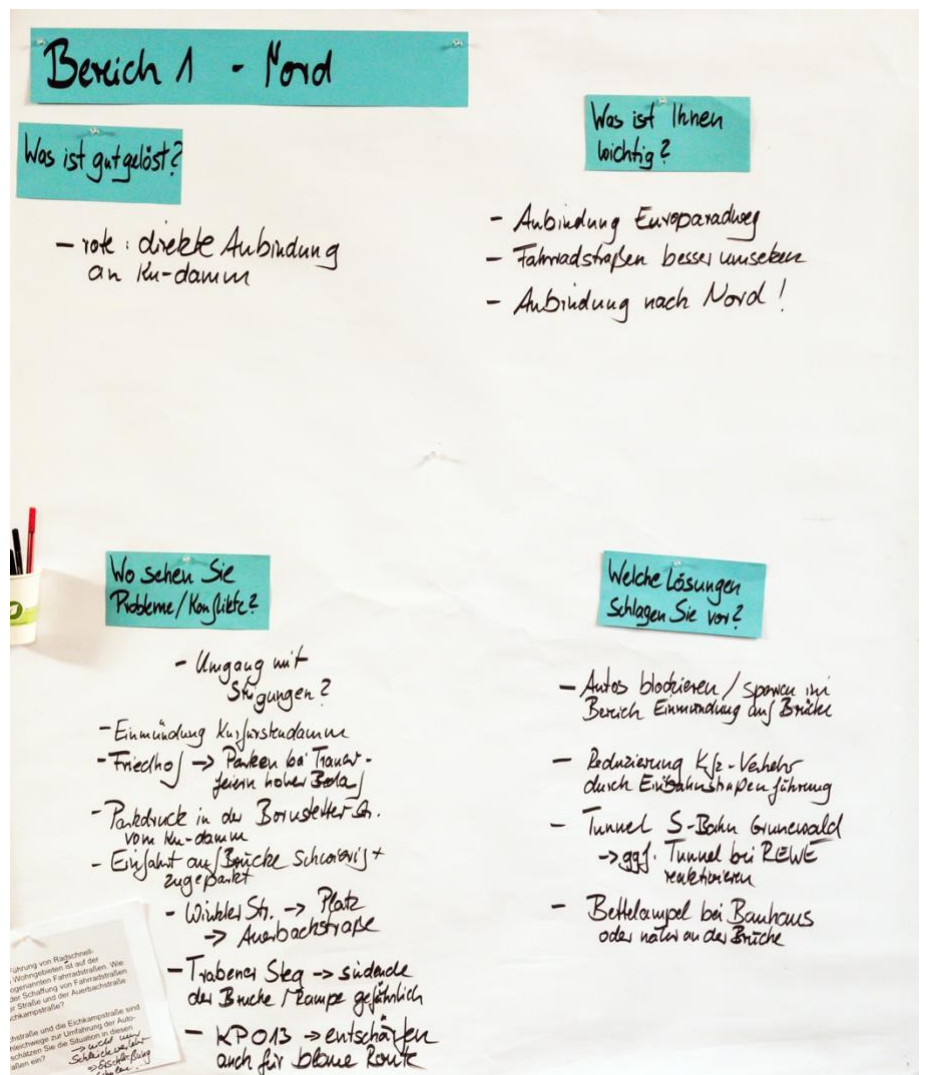 Bereich 1 - Nord
Was ist gut gelöst?
- rote : direkte Anbindung
an Ku-damm
Was ist Ihnen
wichtig?
- Anbindung Europaradweg
- Fahrradstraßen besser umsetzen
- Anbindung nach Nord!
Wo sehen Sie
Probleme/Konflikte?
- Umgang mit
Steigungen?
- Einmündung Kurfürstendamm
- Friedhof -> Parken bei Trauer-
feiern hoher Bedarf
- Parkdruck in der Bornstedter Str.
vom Ku-damm
- Einfahrt auf Brücke schwierig +
zugeparkt
- Winkler Str. -> Platz
-> Auerbachstraße
- Trabener Steg -> südende
der Brücke / Rampe gefährlich
- KP013 -> entschärfen
auch für blaue Route
Welche Lösungen
schlagen Sie vor?
- Autos blockieren / sperren im
Bereich Einmündung auf Brücke
- Reduzierung Kfz-Verkehr
durch Einbahnstraßenführung
- Tunnel S-Bahn Grunewald
-> ggf. Tunnel bei REWE
reaktivieren
- Bettelampel bei Bauhaus
oder näher an der Brücke
führung von Radschnell-
Wohngebieten ist auf der
ogenannten Fahrradstraßen. Wie
der Schaffung von Fahrradstraßen
er Straße und der Auerbachstraße
chkampstraße?
hstraße und die Eichkampstraße sind
hleichwege zur Umfahrung der Auto-
schätzen Sie die Situation in diesen
aßen ein?
-> nicht nur
Schleichverkehr